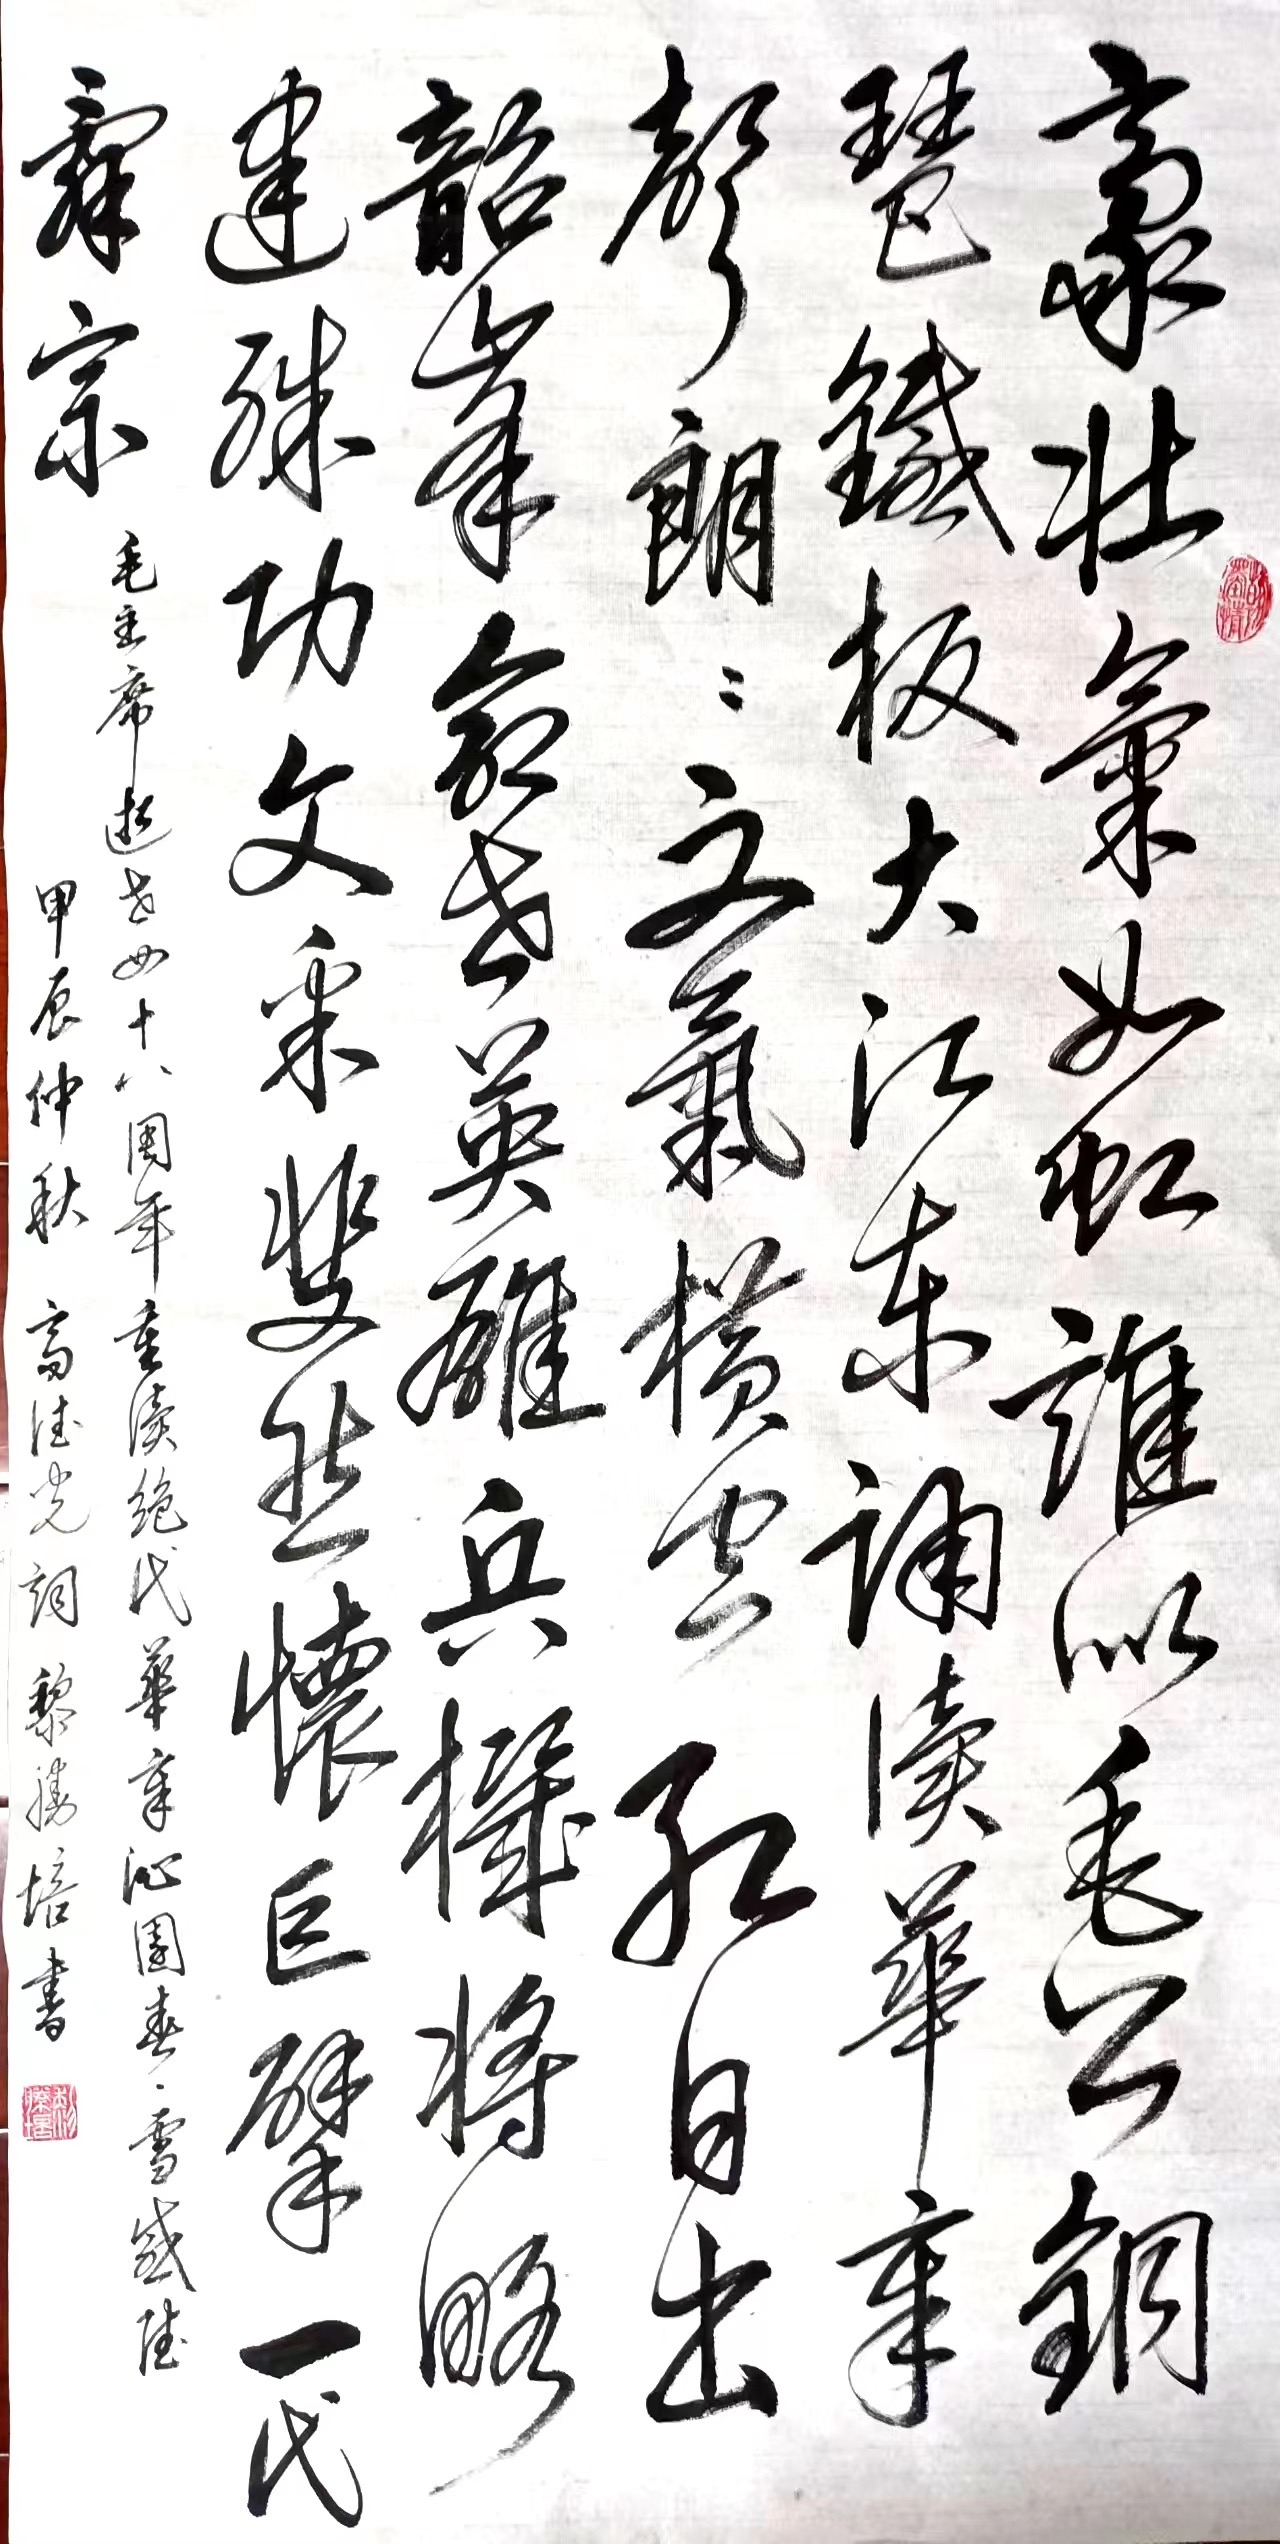 豪壯氣如虹誰似毛公銅
琶鐵板大江东誦讀華章
聲朗〻文氣橫空红日出
韶峯蓋世英雄兵機將略
建殊功文采斐然懷巨擘一代
辭宗
毛主席逝世四十八周年重讀絶代華章沁園春、雪感陸
甲辰仲秋 高陸光詞 黎勝培書